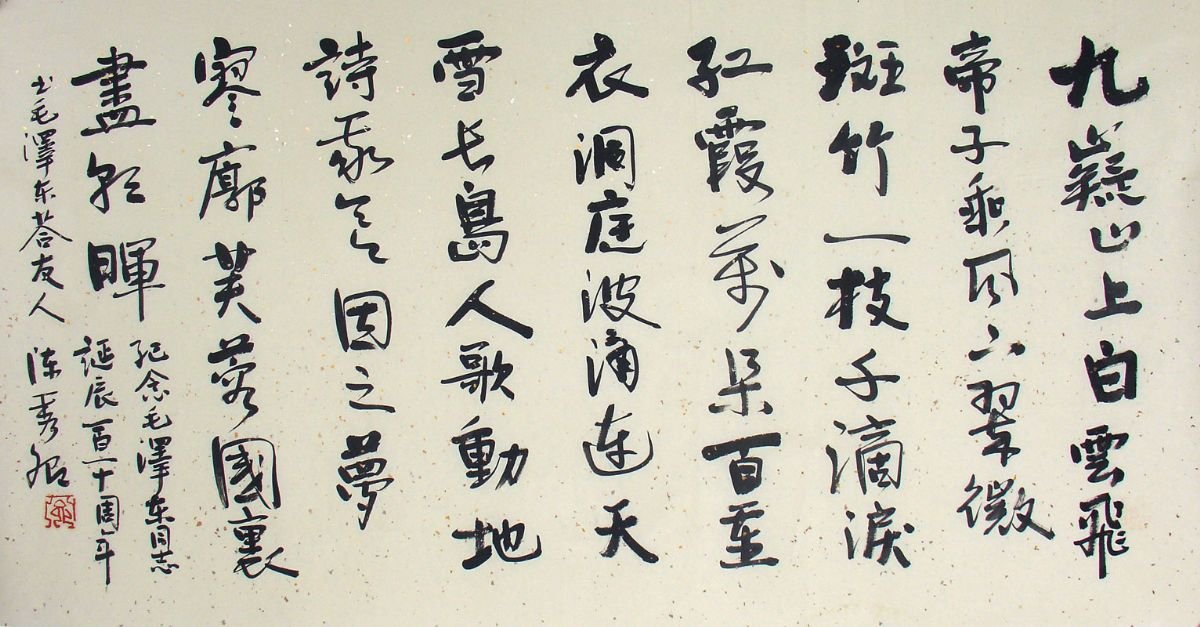 九嶷山上白雲飛
帝子乘风下翠微
斑竹一枝千滴淚
紅霞萬朵百重
衣洞庭波涌连天
雪长島人歌動地
詩我今因之夢
寥廓芙蓉國裏
盡朝暉
纪念毛澤东同志
誕辰百一十周年
书毛澤东荅友人
陈秀